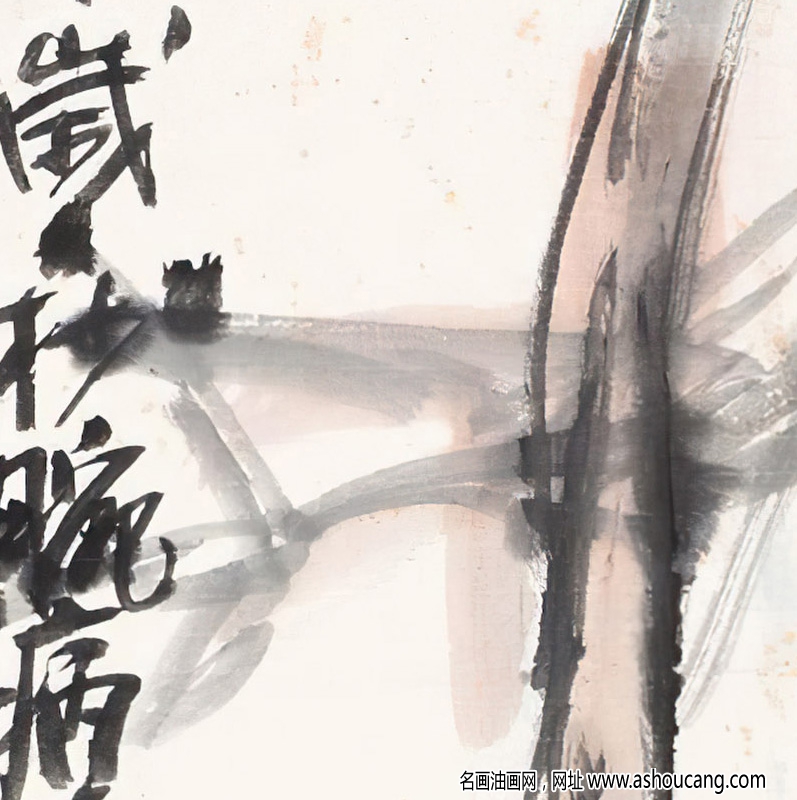 歲
杪
腕
病
名画油画网，网址 www.ashoucang.com